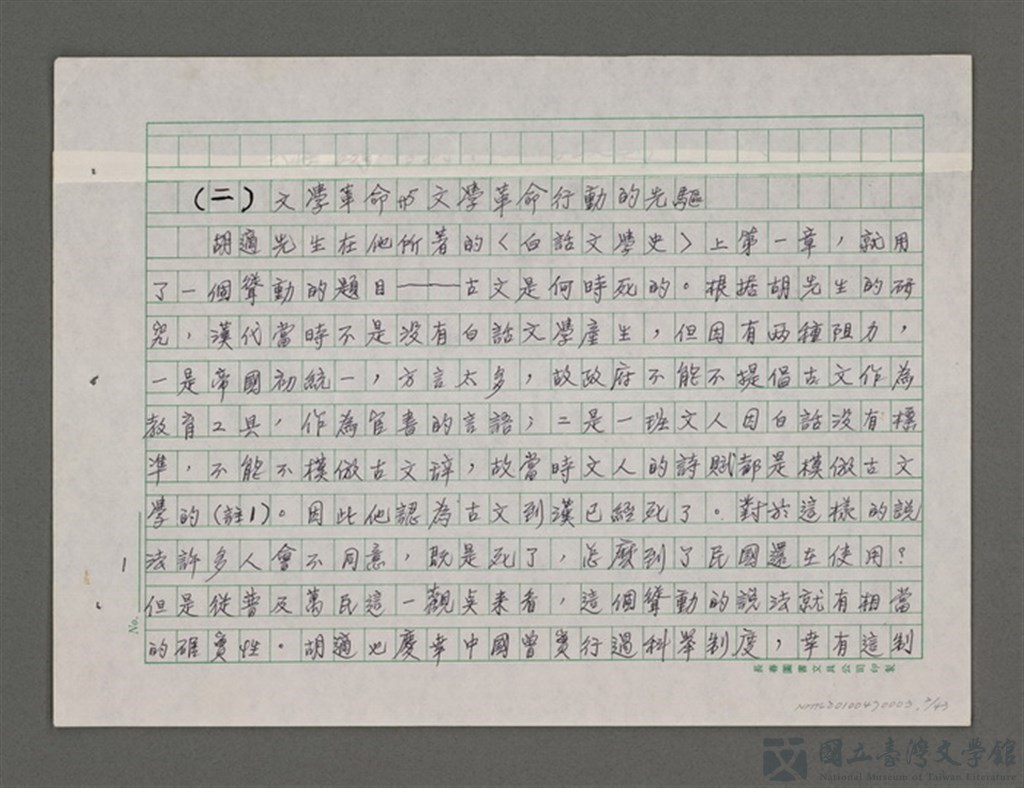 （二）文學革命的文學革命行動的先驅
胡適先生在他所著的〈白話文學史〉上第一章，就用
了一個聳動的題目——古文是何時死的。根据胡先生的研
究，漢代當時不是沒有白話文學產生，但因有兩種阻力，
一是帝國初統一，方言太多，故政府不能不提倡古文作為
教育工具，作為官書的言語；二是一班文人因白話沒有標
準，不能不模倣古文辞，故當時文人的詩賦都是模倣古文
學的（註1）。因此他認為古文到漢已經死了。對於這樣的說
法許多人會不同意，既是死了，怎麼到了民國還在使用？
但是從普及萬民這一觀奌來看，這個聳動的說法就有相當
的確實性。胡適也慶幸中國曾實行過科舉制度，幸有這制
1
No.
長春圖書文具公司印製
NMTL20100470003, 2/43
國立臺灣文學館
National Museum of Taiwan Literature